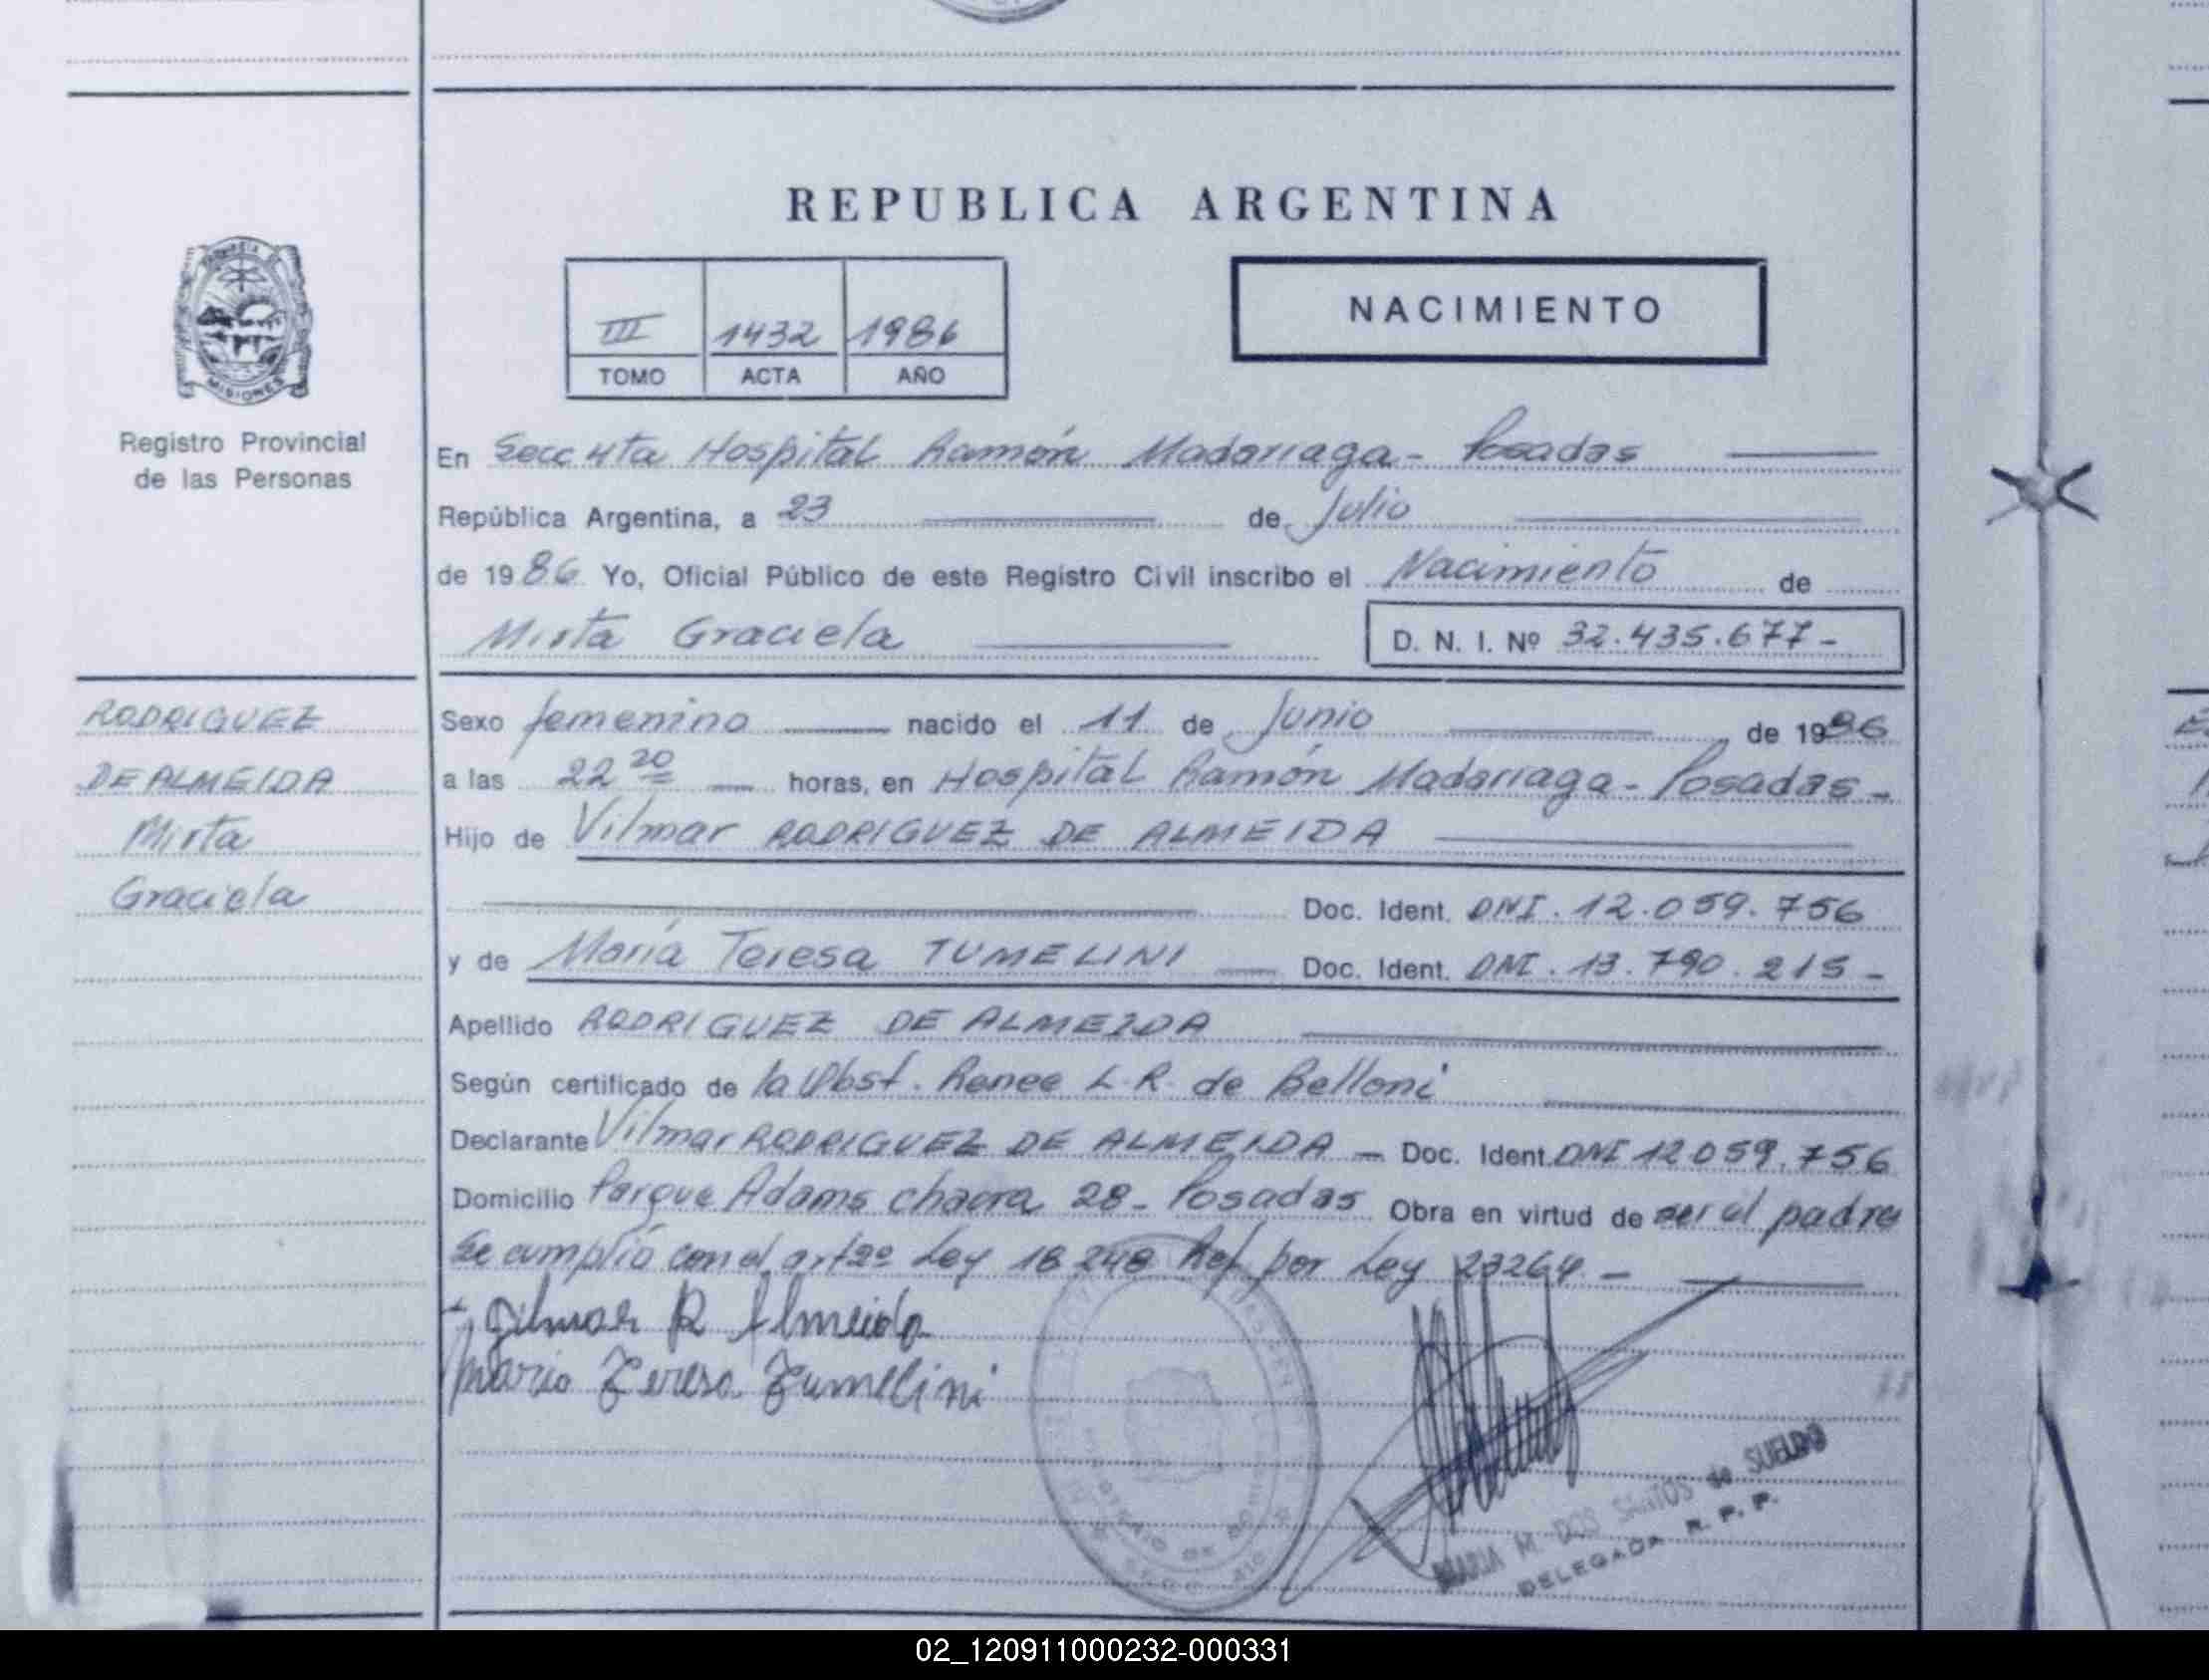 REPUBLICA ARGENTINA
PROVINCIA DE
MISIONES
Registro Provincial
de las Personas
III 1432 1986
TOMO ACTA AÑO
NACIMIENTO
En Secc 4ta Hospital Ramón Madariaga - Posadas
República Argentina, a 23 de Julio
de 1986 Yo, Oficial Público de este Registro Civil inscribo el Nacimiento de
Mirta Graciela
D. N. I. Nº 32.435.677-
RODRIGUEZ
DE ALMEIDA
Mirta
Graciela
Sexo femenino nacido el 11 de Junio de 1986
a las 22 20 horas, en Hospital Ramón Madariaga - Posadas -
Hijo de Vilmar RODRIGUEZ DE ALMEIDA
Doc. Ident. DNI. 12.059.756
y de María Teresa TUMELINI Doc. Ident. DNI. 13.790.215 -
Apellido RODRIGUEZ DE ALMEIDA
Según certificado de la Obst. Renee L. R. de Belloni
Declarante Vilmar RODRIGUEZ DE ALMEIDA - Doc. Ident. DNI 12059.756
Domicilio Parque Adams chacra 28 - Posadas Obra en virtud de ser el padre
Se cumplió con el art 2º Ley 18.248 Ref. por Ley 23264 -
Gilmar R Almeida
Maria Teresa Tumelini
MARIA M. DOS SANTOS de SUELDO
DELEGADA R. P. P.
02_120911000232-000331